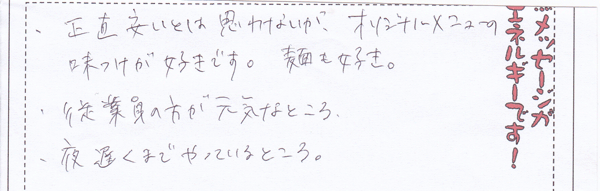 ・正直安いとは思わないが、オリジナルメニューの
味つけが好きです。麺も好き。
・従業員の方が元気なところ.
・夜遅くまでやっているところ。
メッセージが
エネルギーです！